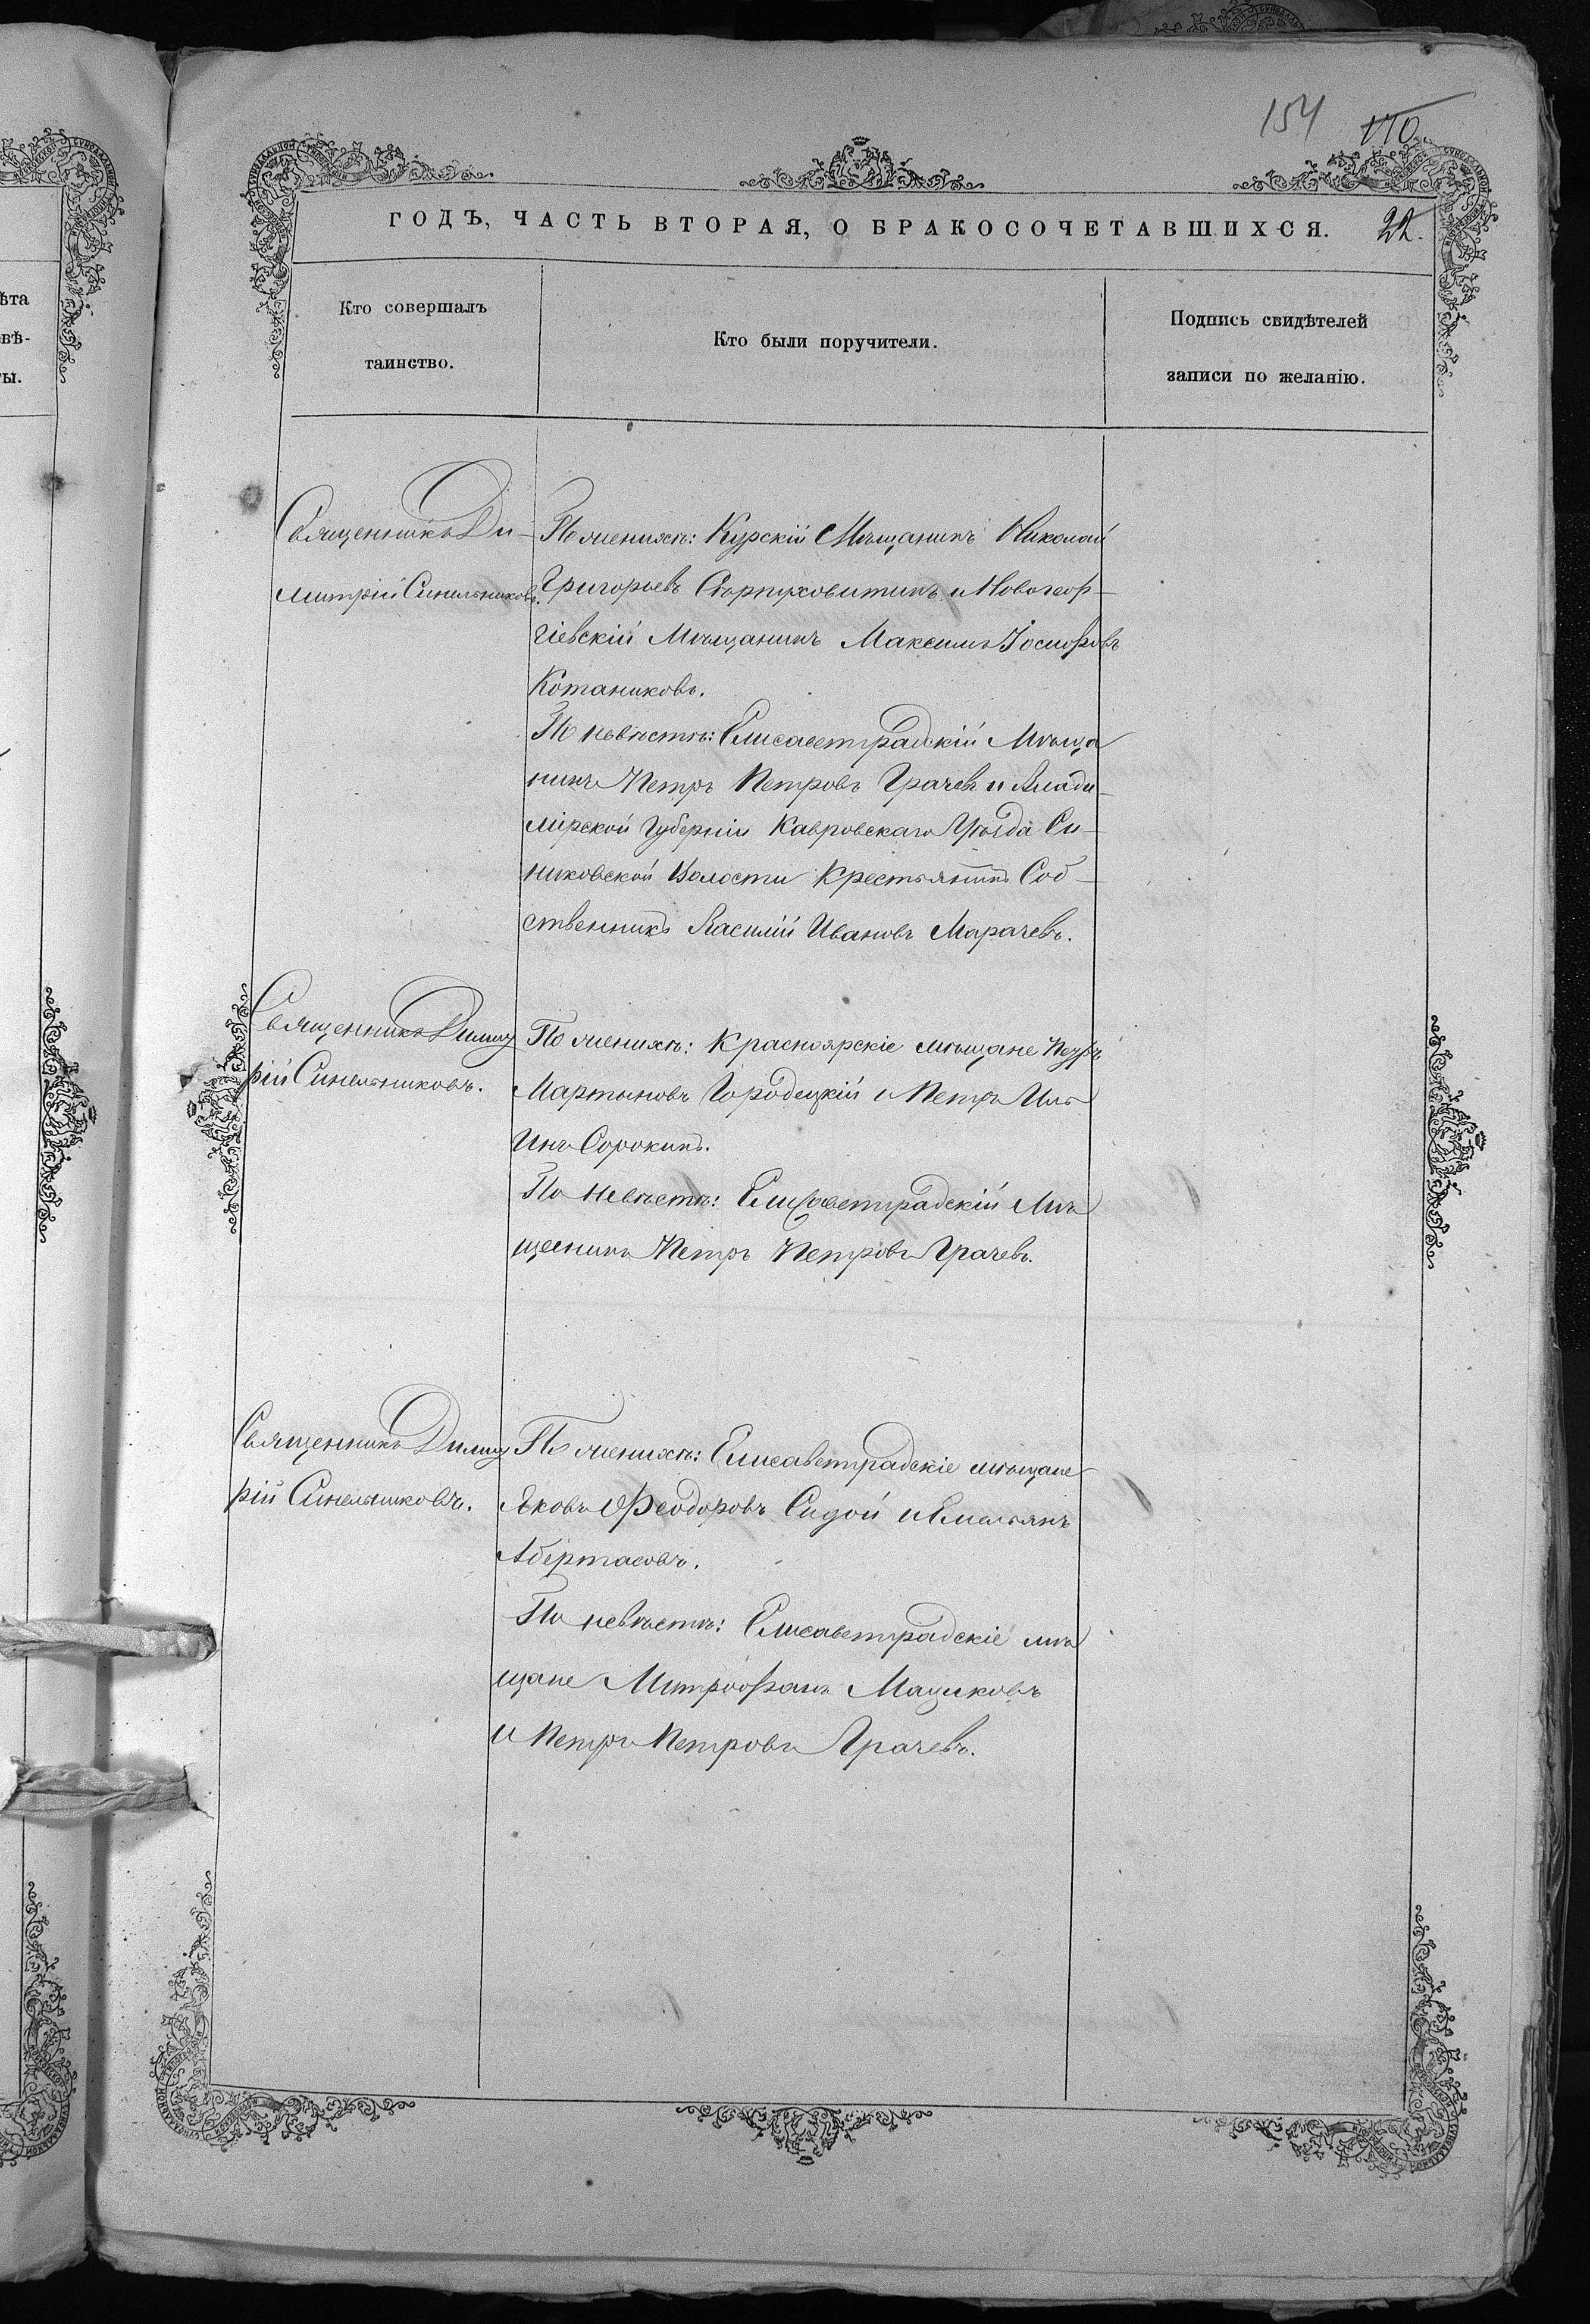 154 170
ГОДЪ, ЧАСТЬ ВТОРАЯ, О БРАКОСОЧЕТАВШИХСЯ.
Кто совершалъ
таинство.
Кто были поручители.
Подпись свидѣтелей
записи по желанію.
ѣта
вѣ-
ты.
Священникъ Ди-
митрій Синельниковъ.
По женихѣ: Курскій Мѣщанинъ Николай
Григорьевъ и Новогеор-
гіевскій Мѣщанинъ Максимъ Іосифовъ
Котаниковъ.
По невѣстѣ: Елисаветградскій Мѣща
нинъ Петръ Петровъ Грачевъ и Влади-
мірской Губерніи Кавровскаго Уѣзда Си-
никовской Волости Крестьянинъ Соб-
ственникъ Василій Ивановъ Марачевъ.
Священникъ Димит
рій Синельниковъ.
По женихѣ: Красноярскіе мѣщане Петръ
Мартыновъ Городецкій и Петръ Иль
инъ Сорокинъ.
По невѣстѣ: Елисаветградскій Мѣ
щанинъ Петръ Петровъ Грачевъ.
Священникъ Димит
рій Синельниковъ.
По женихѣ: Елисаветградскіе мѣщане
Яковъ Феодоровъ Сидой и Емельянъ
Абертасовъ.
По невѣстѣ: Елисаветградскіе мѣ
щане Митрофанъ Мациковъ
и Петръ Петровъ Грачевъ.